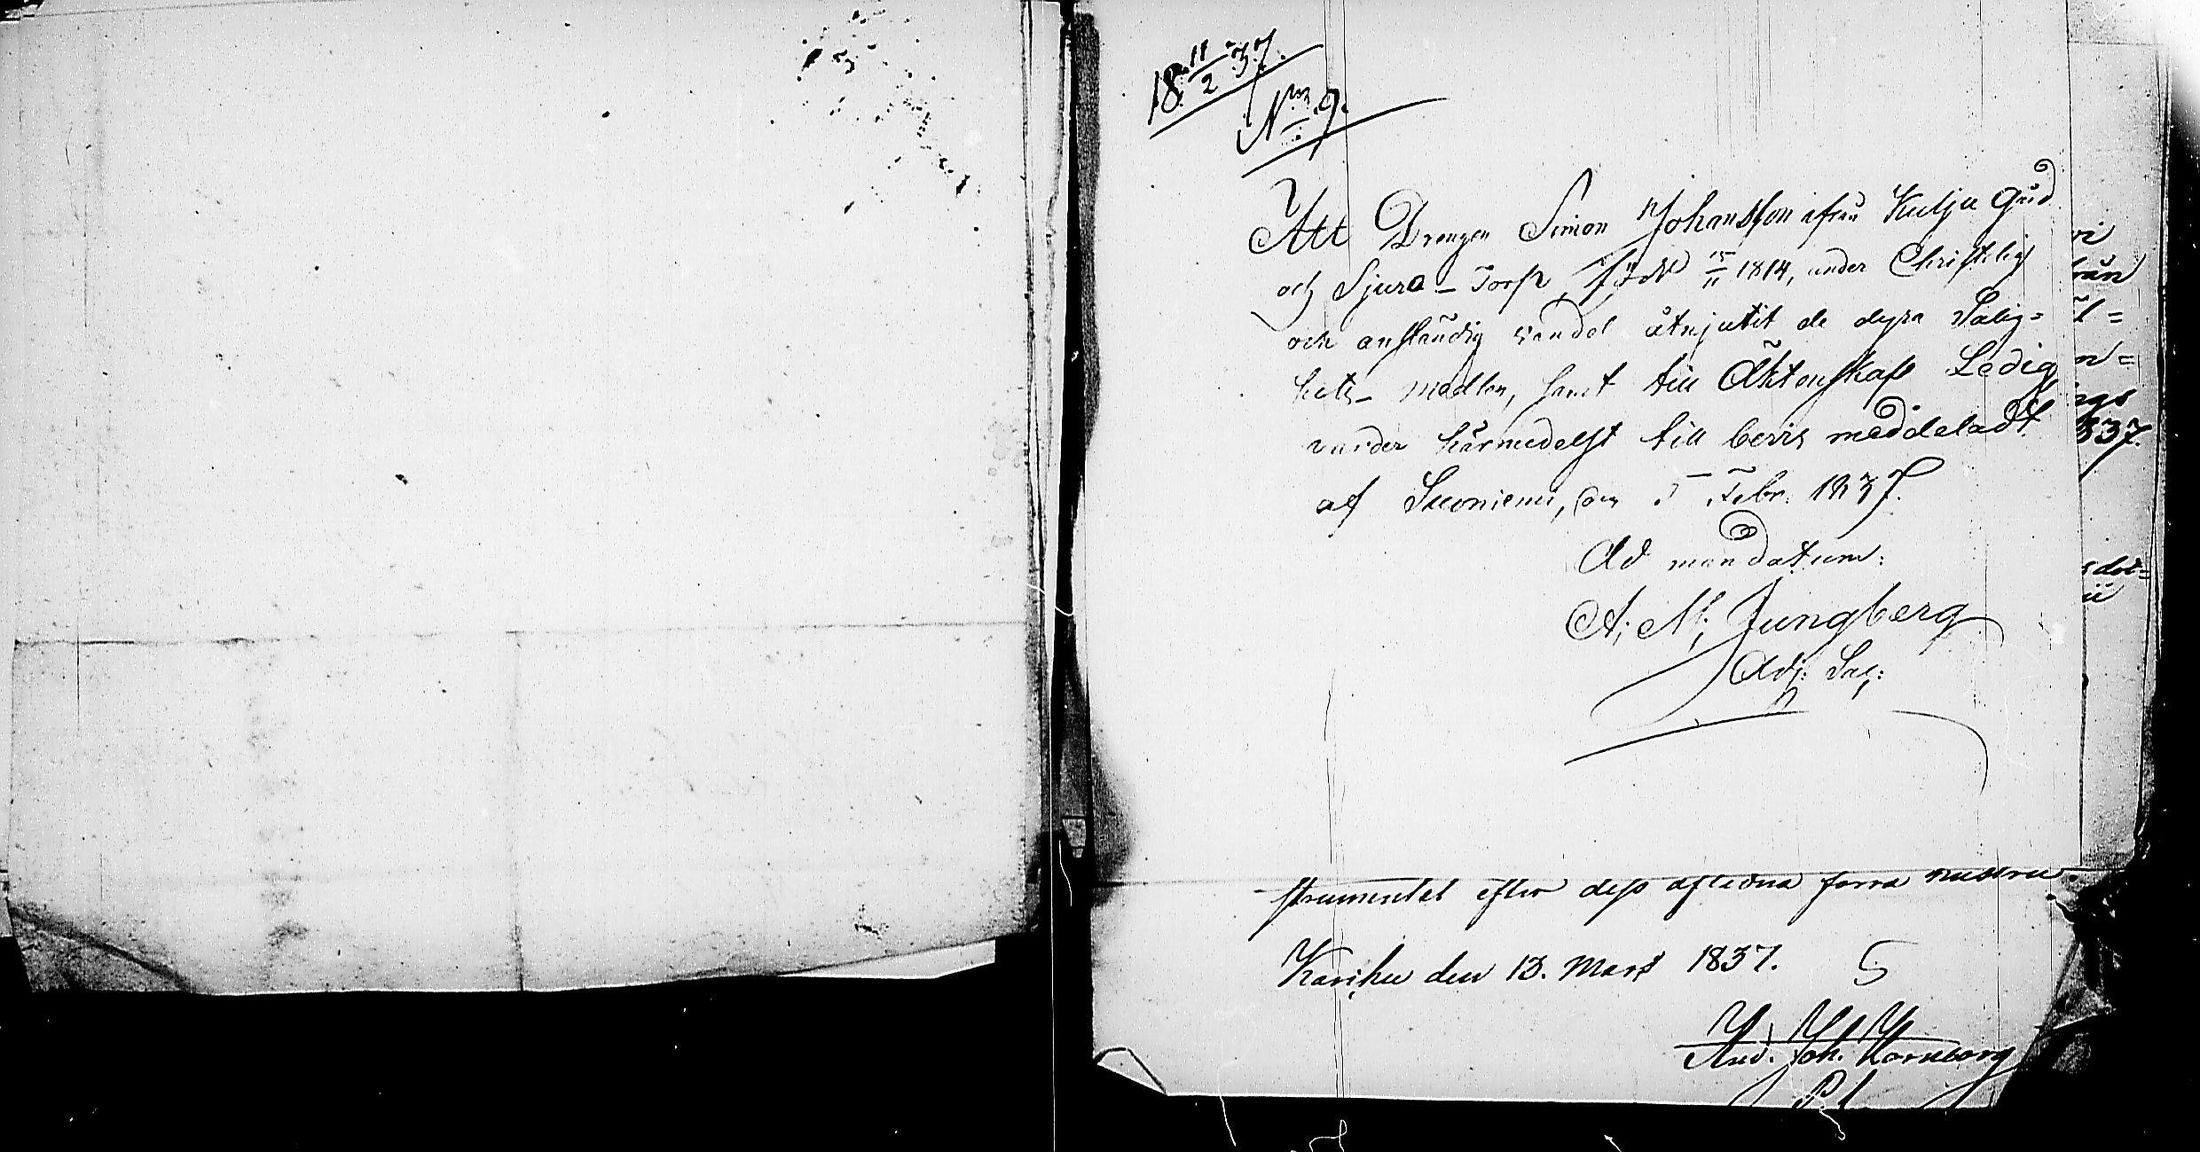 18 11/2 37.
N:o 9.
Att Drengen Simon Johansson ifrån Kulju Gård
och Sjura-Torp, född 15/11 1814, under Christelig
och anständig vandel åtnjutit de dyra Salig=
hets-medlen, samt till Äktenskap Ledig
varder härmedelst till bevis meddeladt.
af Suoniemi, den 5 Febr. 1837.
Ad mandatum:
A. M. Ljungberg
Adj. Sac:
strumentet efter dess aflidna förra
Karkku den 13. Mars 1837.
And. Joh. Hornborg
337.